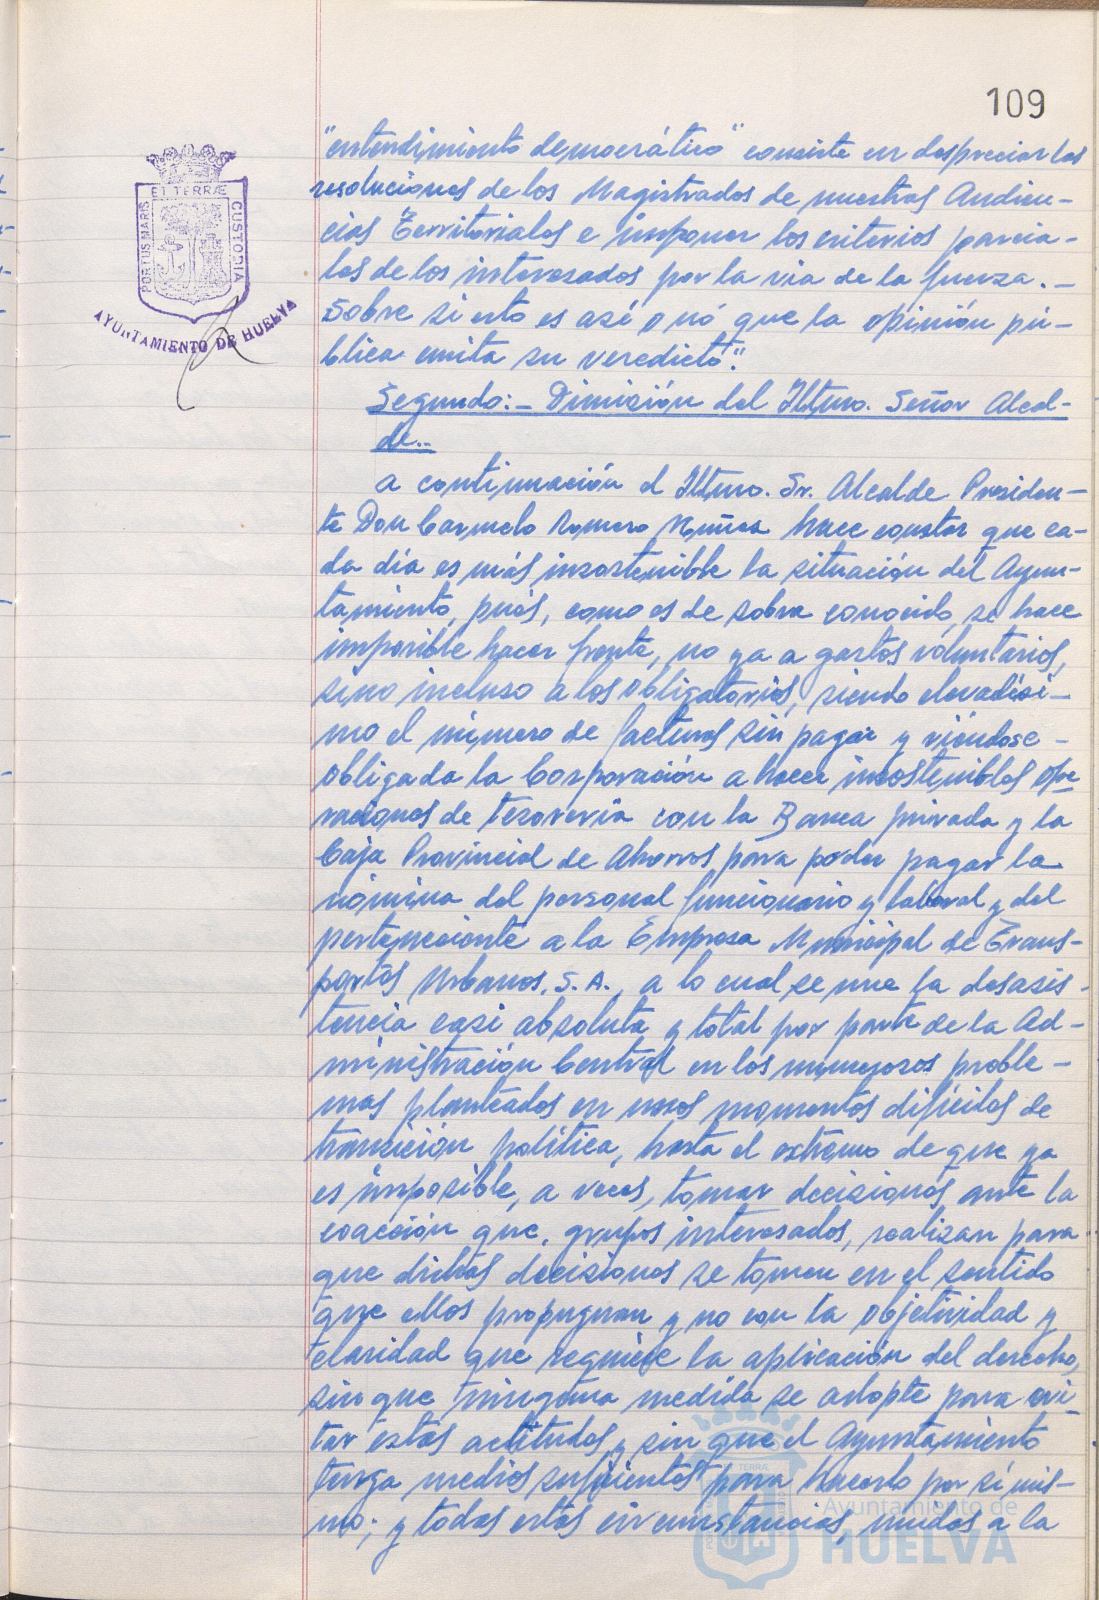 109
"entendimiento democrático" consiste en despreciar las
resoluciones de los Magistrados de nuestras Audien-
cias Territoriales e imponer los criterios parcia-
les de los interesados por la via de la fuerza.-
Sobre si esto es asi o nó que la opinión pú-
blica emita su veredicto".
Segundo:- Dimisión del Iltmo. Señor Alcal-
de.-
A continuación el Iltmo. Sr. Alcalde Presiden-
te Don Carmelo Romero Muñoz hace constar que ca-
da día es más insostenible la situación del Ayun-
tamiento, pués, como es de sobra conocido, se hace
imposible hacer frente, no ya a gastos voluntarios,
sino incluso a los obligatorios, siendo elevadísi-
mo el número de facturas sin pagar y viéndose-
obligada la Corporación a hacer insostenibles ope
raciones de tesorería con la Banca privada y la
Caja Provincial de Ahorros para poder pagar la
nómina del personal funcionario y laboral y del
perteneciente a la Empresa Municipal de Trans-
portes Urbanos, S.A., a lo cual se une la desasis-
tencia casi absoluta y total por parte de la Ad-
ministración Central en los numerosos proble-
mas planteados en unos momentos difíciles de
transición política, hasta el extremo de que ya
es imposible, a veces, tomar decisiones ante la
coacción que, grupos interesados, realizan para
que dichas decisiones se tomen en el sentido
que ellos propugnan y no con la objetividad y
claridad que requiere la aplicación del derecho,
sin que ninguna medida se adopte para evi-
tar estas actitudes y sin que el Ayuntamiento
tenga medios suficientes para hacerlo por sí mis-
mo; y todas estas circunstancias, unidas a la
PORTUS MARIS
ET TERRÆ
CUSTODIA
AYUNTAMIENTO DE HUELVA
Ayuntamiento de
HUELVA